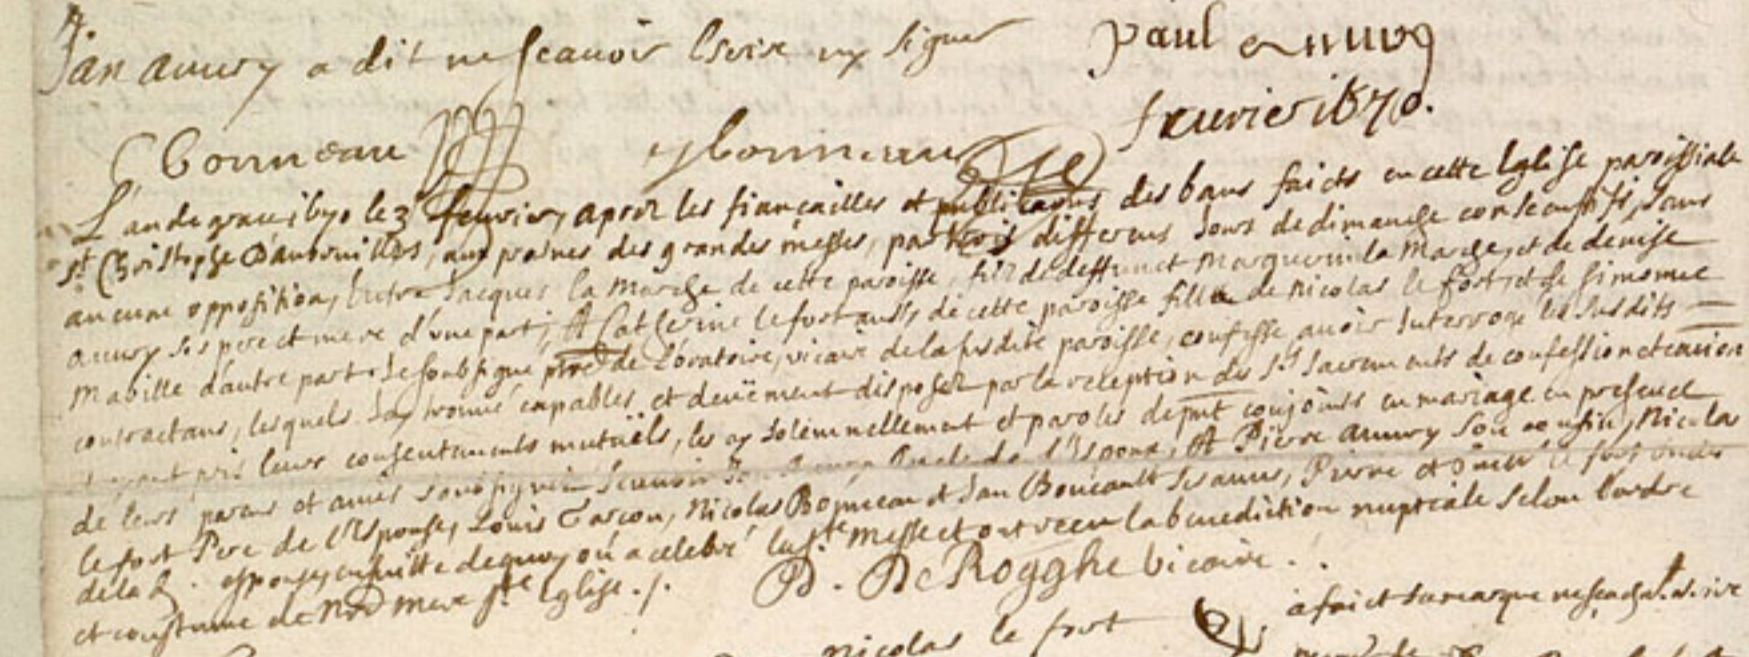 Jan amury a dit ne scauoir Escrire ny signer Paul amury
feurier 1670.
C bonneau y bonneau
L'an de grace 1670 le 3e feurier, aprez les fiançailles et publications des bans faicts en cette Eglise paroissiale
st Christophe d'auberuilliers, aux prosnes des grandes messes, par trois differens Jours de dimanche consecutifs, sans
aucune opposition, Entre Jacques la Marche de cette paroisse, filz de deffunct Marguerin la Marche, et de denise
amury ses pere et mere d'une part; Et Catherine le fort aussy de cette paroisse fille de Nicolas le fort, et de simonne
Mabille d'autre part. Je soubsigné pbre de l'oratoire, vicaire de la susdite paroisse, confesse auoir Interrogé les susdits
contractans, lesquels J'ay trouué capables, et deuëment disposez par la reception des Sts Sacremens de confession et
ayant pris leurs consentements mutuëls, les ay solemnellement et paroles de pnt conjoints en mariage en presence
de leurs parens et amis soussignez de l'Espoux, Et Pierre amury son cousin, Nicolas
le fort Pere de l'Espouse, Louis Tarcou, Nicolas Bonneau et Jan Boucault ses amis, Pierre et le fort oncles
de la d. espouse, ensuitte de quoy on a celebré la ste Messe et ont receu la benediction nuptiale selon l'ordre
et coustume de Nre Mere ste Eglise ./. D. De Rogghe vicaire.
a faict sa marque ne sçachant escrire
Nicolas le fort